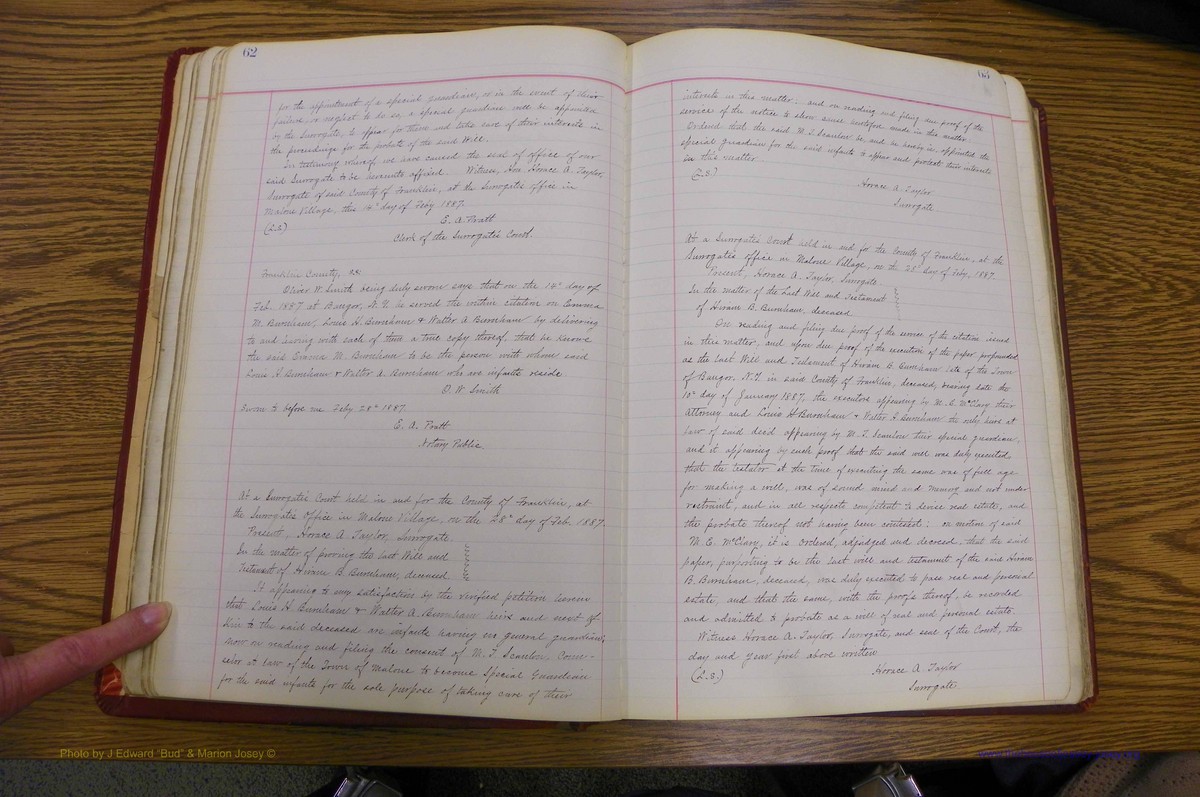 62
for the appointment of a special guardian, or in the event of their
failure, or neglect to do so, a special guardian will be appointed
by the Surrogate, to appear for them and take care of their interests in
the proceedings for the probate of the said Will.
In testimony whereof we have caused the seal of office of our
said Surrogate to be hereunto affixed. Witness, Hon Horace A. Taylor,
Surrogate of said County of Franklin, at the Surrogates office in
Malone Village, this 14th day of Feby 1887.
(L.S.)
E. A. Pratt
Clerk of the Surrogate's Court.
Franklin County, ss:
Oliver W. Smith being duly sworn says that on the 14th day of
Feb. 1887 at Bangor, N.Y. he served the within citation on Emma
M. Burnham, Louis H. Burnham & Walter A Burnham by delivering
to and leaving with each of them a true copy thereof, that he knows
the said Emma M. Burnham to be the person with whom said
Louis H Burnham & Walter A. Burnham who are infants reside.
O. W. Smith
Sworn to before me Feby 28th 1887
E. A. Pratt
Notary Public.
At a Surrogates Court held in and for the County of Franklin, at
the Surrogates Office in Malone Village, on the 28th day of Feb. 1887.
Present, Horace A. Taylor, Surrogate.
In the matter of proving the Last Will and
Testament of Hiram B. Burnham, deceased.
It appearing to my satisfaction by the verified petition herein
that Louis H. Burnham & Walter A. Burnham heirs and next of
Kin to the said deceased are infants having no general guardian,
now on reading and filing the consent of M. T. Scanlon, Coun-
selor at Law of the Town of Malone to become Special Guardian
for the said infants for the sole purpose of taking care of their
63
interests in this matter: and on reading and filing due proof of the
service of the notice to show cause heretofore made in this matter.
Ordered that the said M. T. Scanlon be, and he hereby is, appointed the
special guardian for the said infants to appear and protect their interests
in this matter.
(L.S.)
Horace A. Taylor
Surrogate
At a Surrogates Court held in and for the County of Franklin, at the
Surrogates office in Malone Village, on the 28th day of Feby. 1887
Present, Horace A. Taylor, Surrogate.
In the matter of the Last Will and Testament
of Hiram B. Burnham, deceased
On reading and filing due proof of the service of the citation issued
in this matter, and upon due proof of the execution of the paper propounded
as the Last Will and Testament of Hiram B. Burnham late of the Town
of Bangor, N.Y. in said County of Franklin, deceased, bearing date the
10th day of January 1887, the executors appearing by M. E. McClary their
Attorney and Louis H Burnham & Walter A Burnham the only heirs at
law of said decd appearing by M. T. Scanlon their special guardian,
and it appearing by such proof that the said will was duly executed,
that the testator at the time of executing the same was of full age
for making a will, was of sound mind and memory and not under
restraint, and in all respects competent to devise real estate, and
the probate thereof not having been contested: on motion of said
M. E. McClary, it is ordered, adjudged and decreed, that the said
paper, purporting to be the last will and testament of the said Hiram
B. Burnham, deceased, was duly executed to pass real and personal
estate, and that the same, with the proofs thereof, be recorded
and admitted to probate as a will of real and personal estate.
Witness Horace A. Taylor, Surrogate, and seal of the Court, the
day and year first above written
(L.S.)
Horace A Taylor
Surrogate.
Photo by J Edward "Bud" & Marion Josey ©